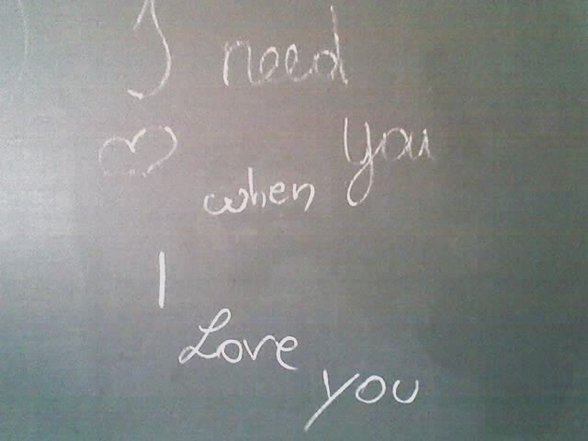 I need
you
when
I
Love
you